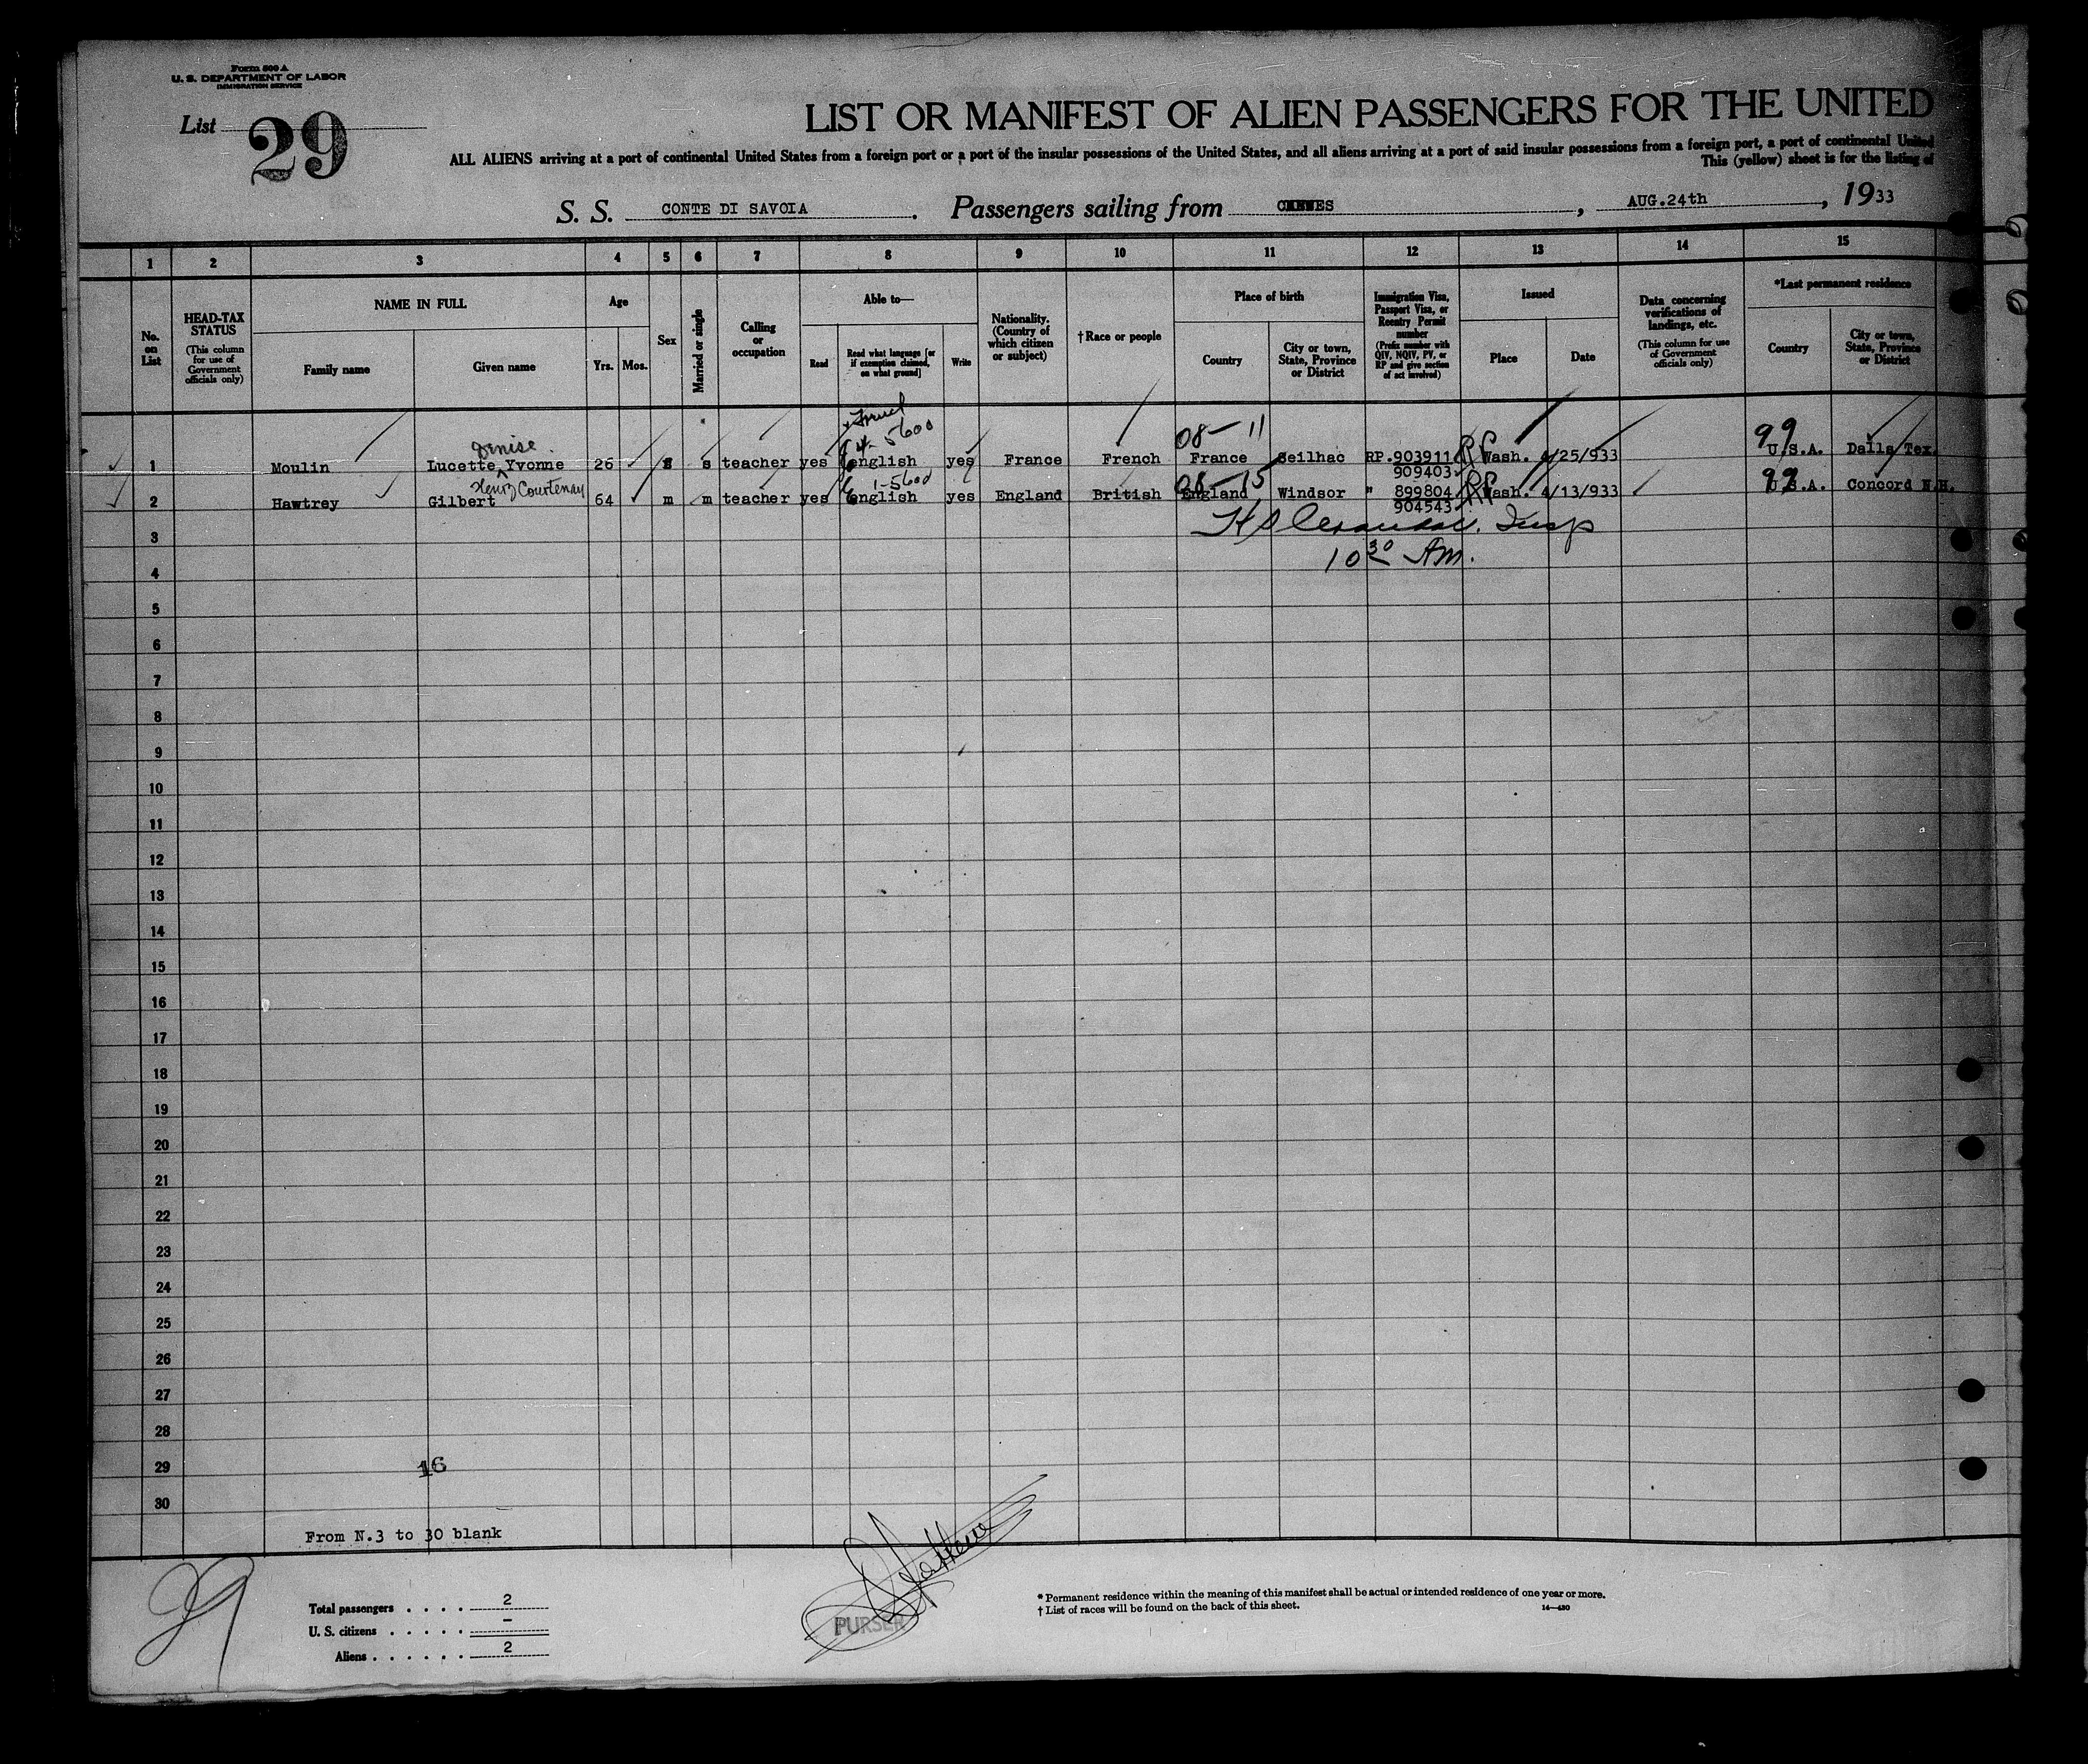 Form 500 A
U. S. DEPARTMENT OF LABOR
IMMIGRATION SERVICE
List 29
LIST OR MANIFEST OF ALIEN PASSENGERS FOR THE UNITED
ALL ALIENS arriving at a port of continental United States from a foreign port or a port of the insular possessions of the United States, and all aliens arriving at a port of said insular possessions from a foreign port, a port of continental United
This (yellow) sheet is for the listing of
S. S. CONTE DI SAVOIA. Passengers sailing from CANNES, AUG.24th, 1933
1 2 3 4 5 6 7 8 9 10 11 12 13 14 15
No. on List
HEAD-TAX STATUS (This column for use of Government officials only)
NAME IN FULL
Family name
Given name
Age
Yrs. Mos.
Sex
Married or single
Calling or occupation
Able to—
Read
Read what language [or if exemption claimed, on what ground]
Write
Nationality. (Country of which citizen or subject)
† Race or people
Place of birth
Country
City or town, State, Province or District
Immigration Visa, Passport Visa, or Reentry Permit number (Prefix number with QIV, NQIV, PV, or RP and give section of act involved)
Issued
Place
Date
Data concerning verifications of landings, etc. (This column for use of Government officials only)
*Last permanent residence
Country
City or town, State, Province or District
Denise
4-5600
08-11
99
1 Moulin Lucette Yvonne 26 s teacher yes english yes France French France Seilhac RP.903911 Wash. 4/25/933 U.S.A. Dalls Tex.
909403
Henry Courtenay
1-5600
08-15
99
2 Hawtrey Gilbert 64 m m teacher yes english yes England British England Windsor " 899804 Wash. 4/13/933 U.S.A. Concord N.H.
904543
Insp
10 30 AM.
3
4
5
6
7
8
9
10
11
12
13
14
15
16
17
18
19
20
21
22
23
24
25
26
27
28
29
16
30
From N.3 to 30 blank
29
Total passengers . . . . 2
U. S. citizens . . . . . –
Aliens . . . . . . 2
PURSER
* Permanent residence within the meaning of this manifest shall be actual or intended residence of one year or more.
† List of races will be found on the back of this sheet.
14—430